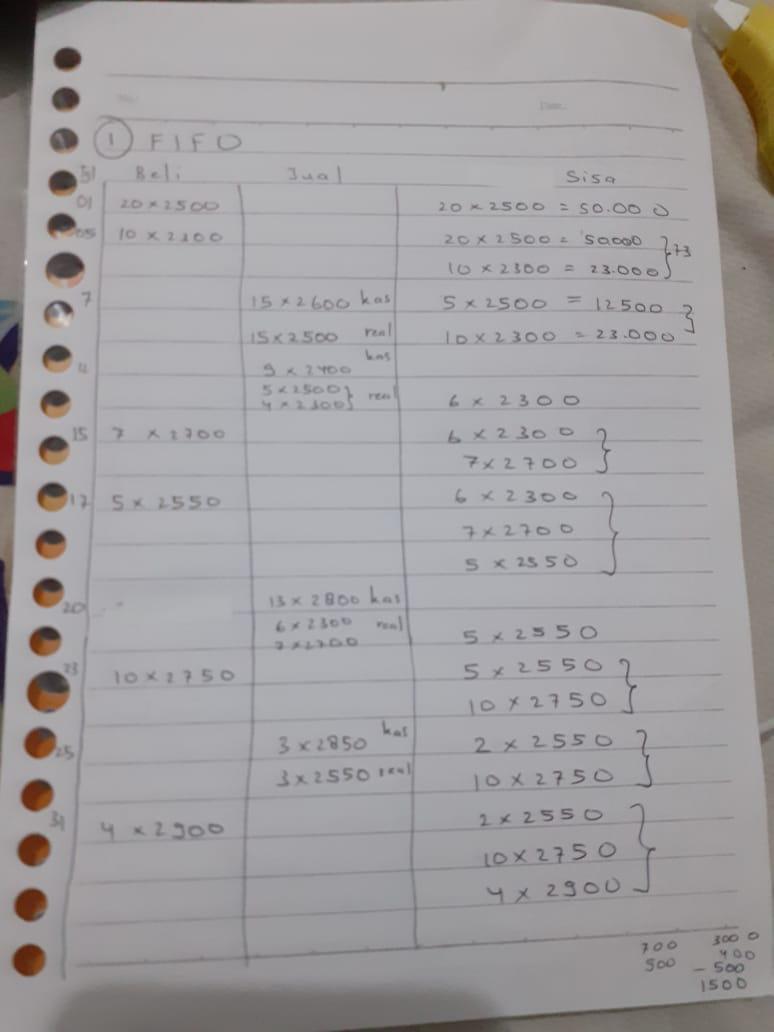 1 FIFO
Beli Jual Sisa
01 20 x 2500 20 x 2500 = 50.000
05 10 x 2300 20 x 2500 = 50000 } 73
10 x 2300 = 23.000
7 15 x 2600 kas 5 x 2500 = 12500 }
15 x 2500 real 10 x 2300 = 23.000
9 x 2400 kas
5 x 2500 } real
4 x 2300 6 x 2300
15 7 x 2700 6 x 2300 }
7 x 2700
17 5 x 2550 6 x 2300 }
7 x 2700
5 x 2550
20 13 x 2800 kas
6 x 2300 real
7 x 2700 5 x 2550
23 10 x 2750 5 x 2550 }
10 x 2750
25 3 x 2850 kas 2 x 2550 }
3 x 2550 real 10 x 2750
31 4 x 2900 2 x 2550 }
10 x 2750
4 x 2900
700 3000
500 400
- 500
1500